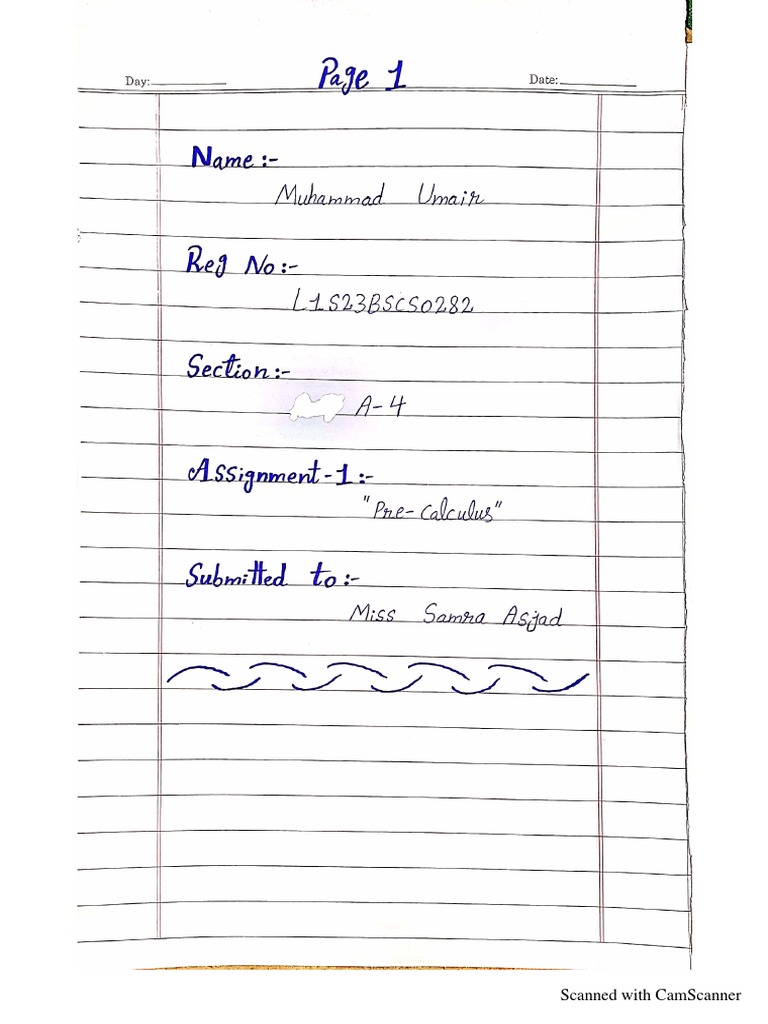 Page 1
Day:__________ Date:__________
Name:-
Muhammad Umair
Reg No:-
L1S23BSCS0282
Section:-
A-4
Assignment-1:-
"Pre-Calculus"
Submitted to:-
Miss Samra Asjad
Scanned with CamScanner